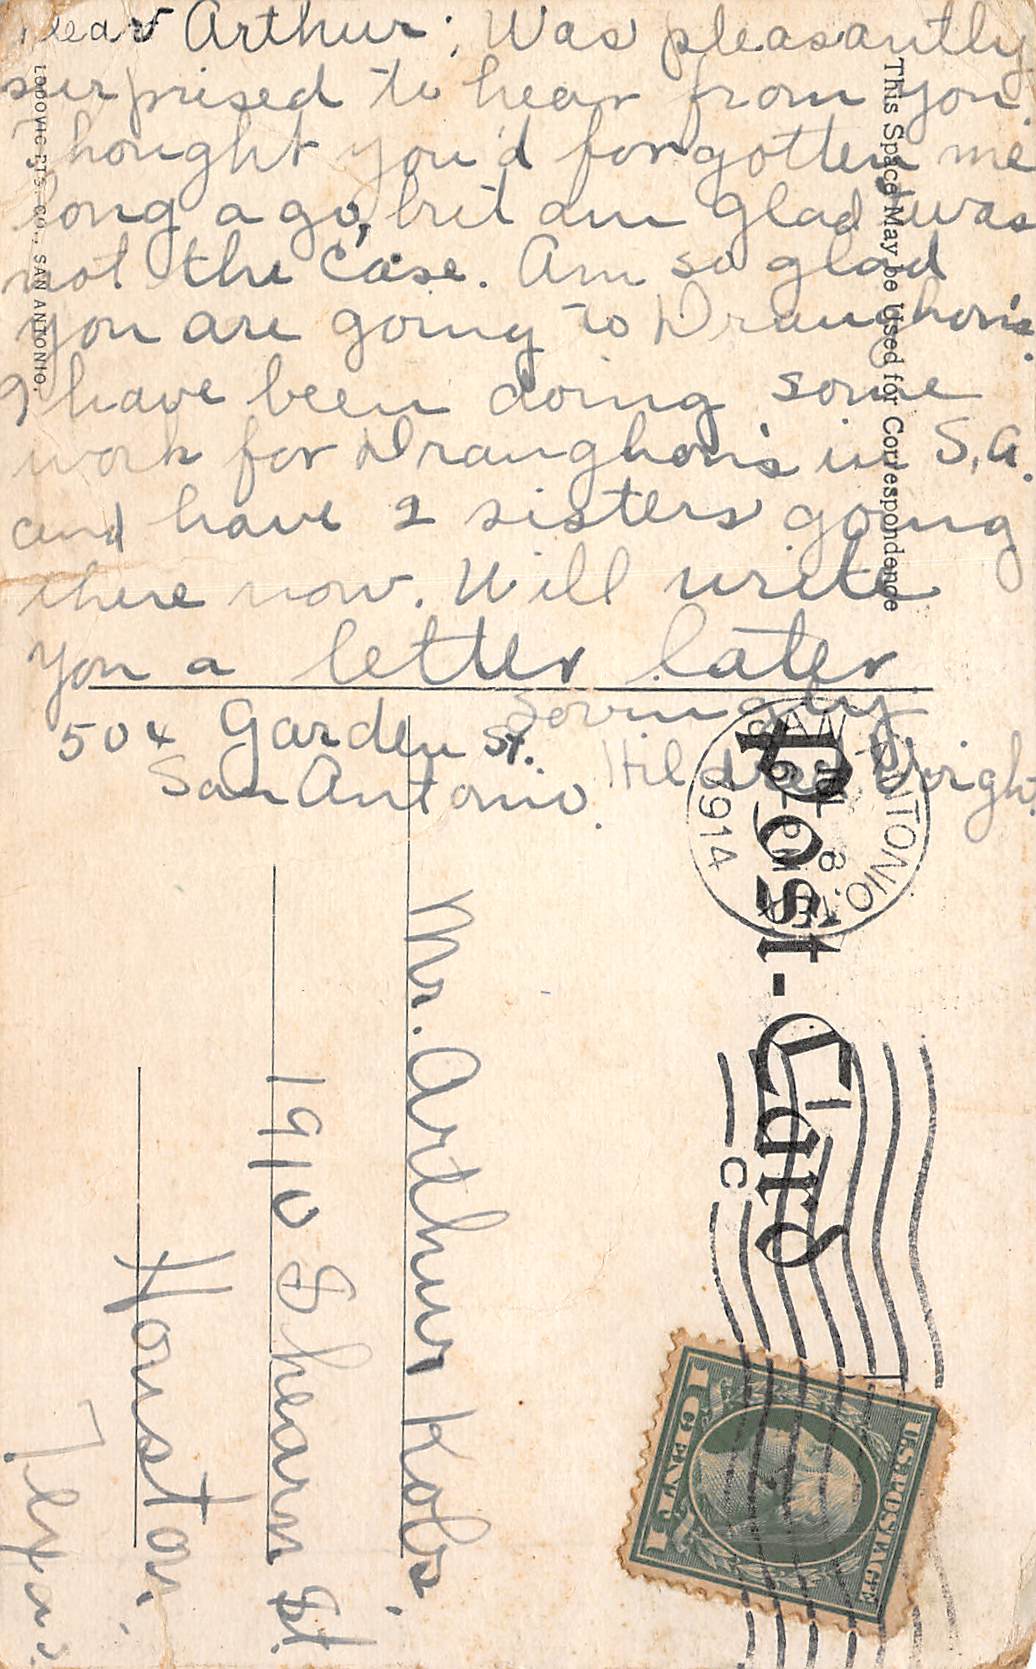 Dear Arthur: Was pleasantly
surprised to hear from you.
Thought you'd forgotten me
long ago, but am glad 'twas
not the case. Am so glad
you are going to Draughon's.
I have been doing some
work for Draughon's in S.A.
and have 2 sisters going
there now. Will write
you a letter later
Lovingly
504 Garden St.
San Antonio.
This Space May be Used for Correspondence
Post-Card
SAN ANTONIO
1914
Mr. Arthur Kolb.
1910 Shearn St.
Houston.
Texas.
U.S. POSTAGE
1 CENT 1
C
CO., SAN ANTONIO.